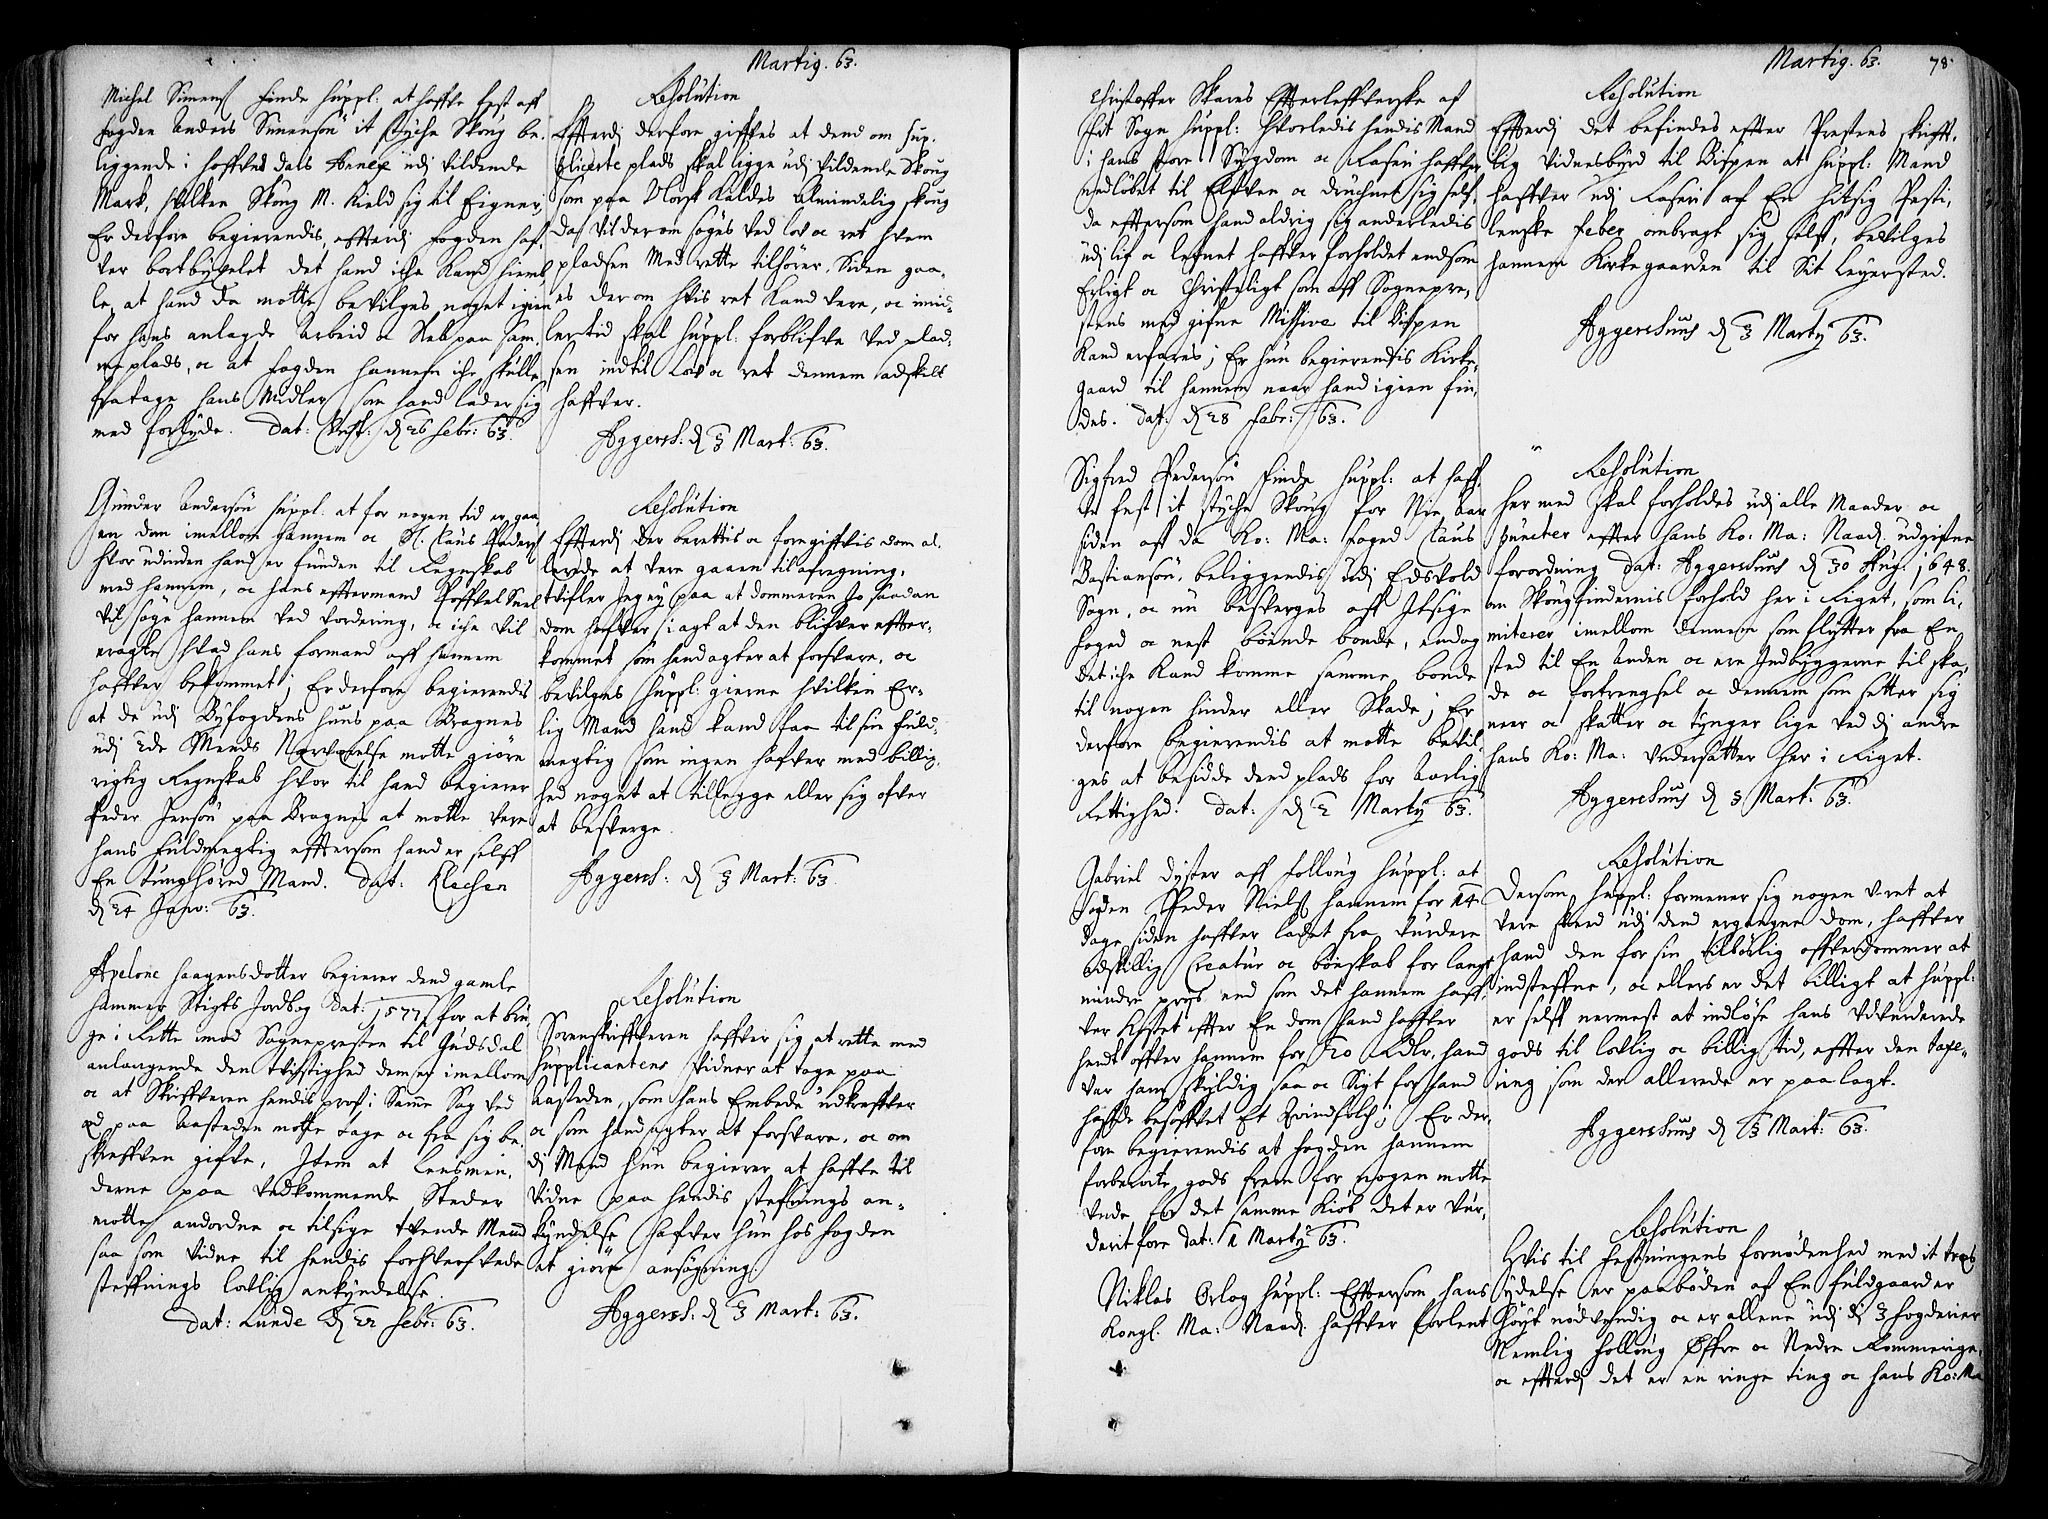 Martij. 63.
Michel Simens Finde suppl: at haffve fest aff
fogden Anders Simensøn it støche Skoug be-
liggende i hoffvedals Annex udj vildende
Mark, hvilken Skoug M. Kield sig til Eigner,
Er derfore begierendis, efftersom fogden haf-
ver bortbygslet det hand iche Kand hiem-
le, at hand da motte bevilges noget igien
for hans anlagde arbeid oc paa sam-
me plads, oc at fogden hannem iche skulle
fratage hans Midler som hand lader sig
med forlyde. Dat: d 26 febr: 63.
Resolution
Efftersom derfore gifves at dend om sup-
plicerte plads skal ligge udj vildende Skoug
som paa Norsk Kaldes almindelig skoug
da vil derom søges ved lov oc ret hvem
pladsen Med rette tilhører, siden gaa-
es derom hvis ret Kand vere, oc imid-
lertid skal suppl: forblifve ved plad-
sen indtil Lov oc ret dennem adskilt
haffver.
Aggersh: d 3 Mart: 63.
Gunder Andersøn suppl: at for nogen tid er gaa-
en dom imellom hannem oc S. Claus Pedersø
hvorudinden hand er funden til Regnskab
med hannem, oc hans efftermand Poffvel
vil søge hannem ved vordering, oc iche vil
eragte hvad hans formand aff hannem
haffver bekommet; Er derfore begierendis
at de udj Byfogdens huus paa Bragnes
udj 2de Mends Nerverelse motte giøre
rigtig Regnskab hvor til hand begierer
Peder Jensøn paa Bragnes at motte vere
hans fuldmegtig efftersom hand er selff
En tunghøred Mand. Dat: Klechen
d 24 Janv: 63.
Resolution
Efftersom der berettis oc foregiffvis dom al-
lerede at vere gaaen til afregning,
tvifler Jeg ey paa at dommeren jo saadan
dom hafver i agt at den blifver effter-
kommet som hand agter at forsvare, oc
bevilges suppl: gierne hvilken Er-
lig Mand hand kand faa til sin fuld-
megtig som ingen hafver med billig-
hed noget at tillegge eller sig ofver
at besverge.
Aggersh: d 3 Mart: 63.
Apelone haagensdotter begierer dend gamle
hammer Stigts Jordbog dat: 1577 for at bru-
ge i Rette imod Sognepresten til Gudsdal
anlangende den tvistighed demb imellom
oc at Skriffveren hendis prof i samme Sag ved
Ed paa Aasteden motte tage oc fra sig be-
skreffven giffve, Item at Lensmen-
derne paa vedkommende Steder
motte anordne oc tilsige tvende Mend
saa som vidne til hendis forhverfvede
steffnings lovlig ankyndelse.
Dat: Lunde d 22 febr: 63.
Resolution
Sorenskriffveren haffver sig at rette med
supplicantens Vidner at tage paa
aasteden, som hans Embede udkreffver
oc som hand agter at forsvare, oc om
di Mend hun begierer at haffve til
vidne paa hendis steffnings an-
kyndelse hafver hun hos fogden
at giøre ansøgning.
Aggersh: d 3 Mart: 63.
Martij. 63. 78
Christoffer Skares Effterleffverske af
Fit Sogn suppl: hvorledis hendis Mand
i hans store Sygdom oc Raseri haffver
nedløbet til Elfven oc druchnet sig self,
da efftersom hand aldrig sig anderledis
udj lif oc lefnet haffver forholdet end som
Erligt oc Christeligt som aff Sognepre-
stens med gifne Missive til Bispen
Kand erfares; Er hun begierendis Kirke-
gaard til hannem naar hand igien fin-
des. Dat: d 28 Febr: 63.
Resolution
Efftersom det befindes effter Prestens skrifft-
lig vidnesbyrd til Bispen at suppl: Mand
haffver udj Raseri af En hitsig Pesti-
lenske feber ombragt sig selff, bevilges
hannem Kirkegaarden til Sit Leyersted.
Aggershuus d 3 Martij 63.
Sigfred Pedersøn Finde suppl: at haff-
ve fest it støche Skoug for Nie aar
siden aff da Ko: Ma: foged Claus
Bastiansøn, beliggendis udj Edsvold
Sogn, oc nu besverges aff Itsige
foged oc nest boende bonde, endog
det iche Kand komme samme bonde
til nogen hinder eller Skade; Er
derfore begierendis at motte bevil-
ges at besidde dend plads for Aarlig
Rettighed. Dat: d 2 Martij 63.
Resolution
her med skal forholdes udj alle Maader oc
puncter effter hans Ko: Ma: Naad: udgifne
forordning dat: Aggershuus d 30 Aug: 1648.
om Skougfindernis forhold her i Riget, som li-
miterer imellom dennem som flytter fra En
sted til En Anden oc ere Indbyggerne til ska-
de oc fortrengsel oc dennem som setter sig
neer oc skatter oc tynger lige ved di andre
hans Ko: Ma: Undersaatter her i Riget.
Aggershuus d 3 Mart: 63.
Gabriel Dyster aff Folloug suppl: at
fogden Peder Niels hannem for 14
dage siden haffver ladet fra vurdere
adskillig Creatur oc boeskab for langt
mindre priis end som det hannem haff-
ver Kostet effter En dom hand haffver
hendt offver hannem for 20 Rdlr, hand
var ham skyldig saa oc Sigt for hand
hafde besoffvet Et Qvindfolch; Er der-
fore begierendis at fogden hannem
forberørte gods frem for nogen motte
unde for det samme Kiøb det er vur-
derit fore dat: 1 Martij 63.
Resolution
Dersom suppl: formener sig nogen uret at
vere skeed udj dend ergangne dom, haffver
hand den for sin tilbørlig offverdommer at
indsteffne, oc ellers er det billigt at suppl:
er selff nermest at indløse hans Udvurderede
gods til lovlig oc billig tid, effter den taxe-
ring som der allerede er paalagt.
Aggershuus d 3 Mart: 63.
Niklas Orlog suppl: Efftersom hans
Kongl. Ma: Naad: haffver forlent
Resolution
Hvis til Festningens fornødenhed med it
ydelse er paabøden af En fuldgaard er
høyt nødvendig oc er allene udj di 3 fogderier
Nemlig Folloug Øffre oc Nedre Rommerige,
oc efftersom det er en ringe ting oc hans Ko: Ma